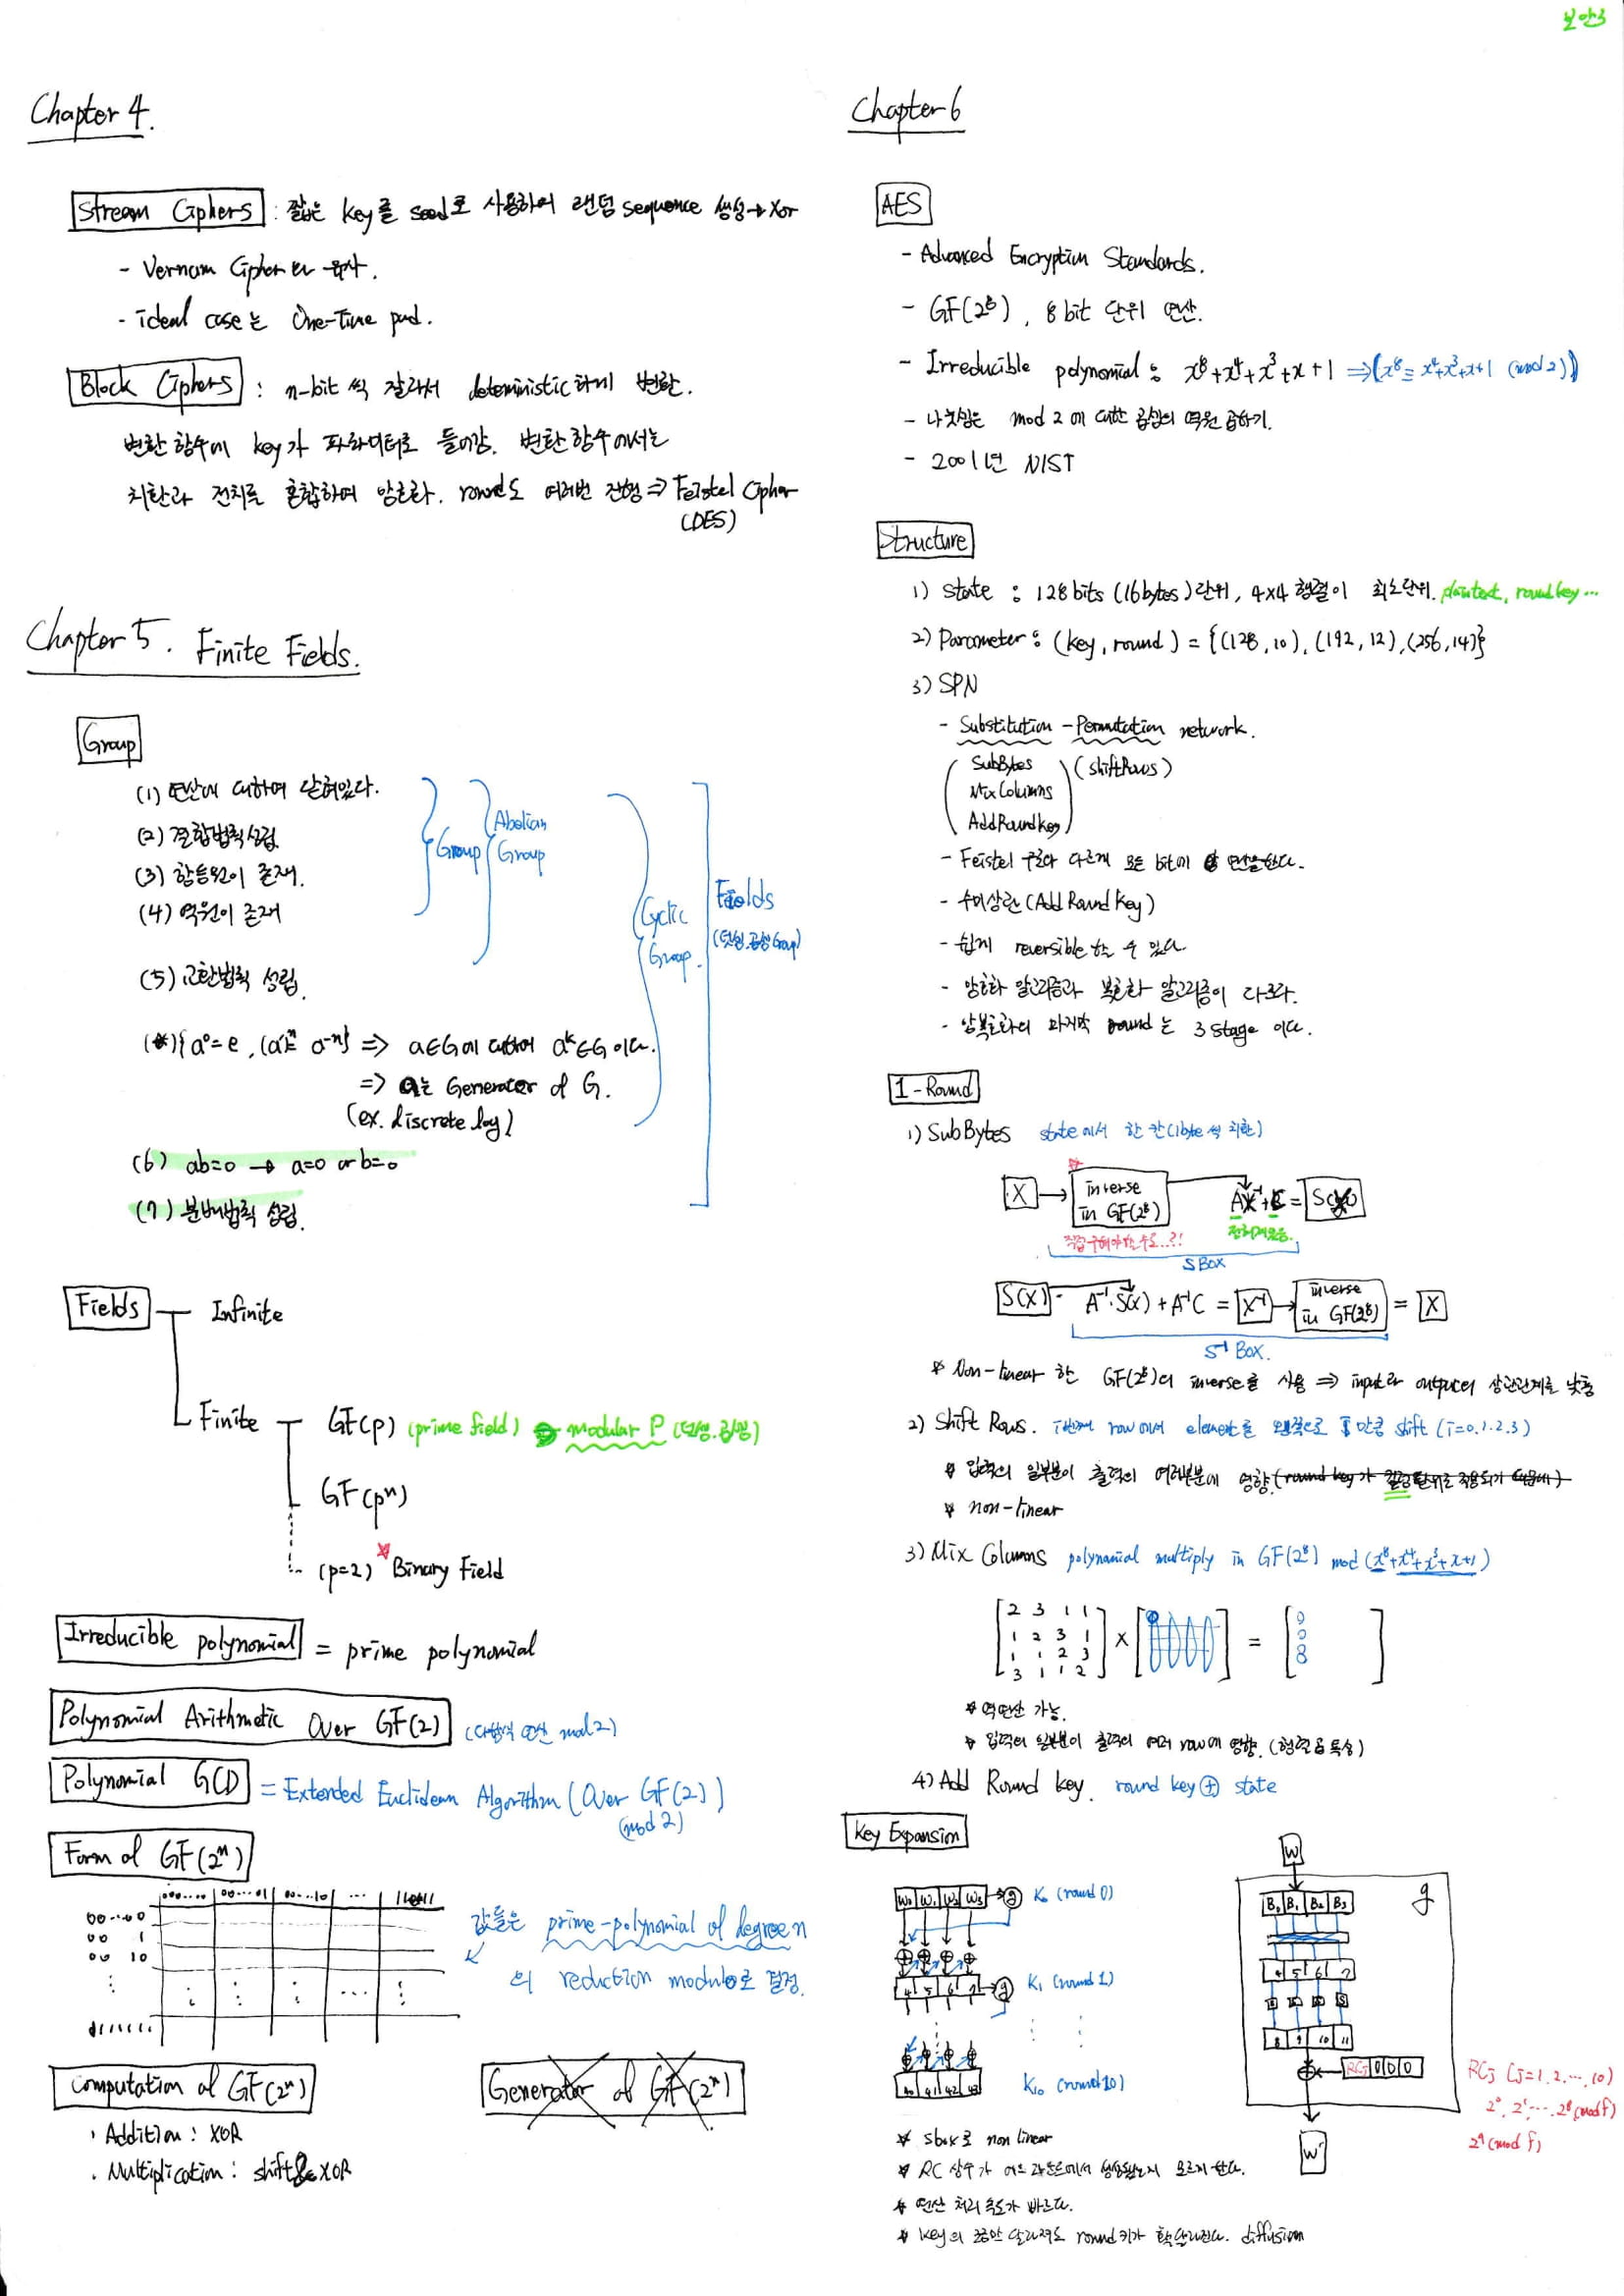 보안3
Chapter 4.
Stream Ciphers : 짧은 key를 seed로 사용하여 랜덤 sequence 생성→Xor
- Vernam Cipher와 유사.
- ideal case는 One-Time pad.
Block Ciphers : n-bit 씩 잘라서 deterministic하게 변환.
변환 함수에 key가 파라미터로 들어감. 변환 함수에서는
치환과 전치를 혼합하여 암호화. round도 여러번 진행 ⇒ Feistel Cipher
(DES)
Chapter 5. Finite Fields.
Group
(1) 연산에 대하여 닫혀있다.
(2) 결합법칙성립
(3) 항등원이 존재.
(4) 역원이 존재
(5) 교환법칙 성립.
Group
Abelian
Group
Cyclic
Group.
Fields
(덧셈.곱셈Group)
(*) { a⁰=e, (a')ⁿ= a⁻ⁿ} => a∈G에 대하여 aᵏ∈G 이다.
=> a는 Generator of G.
(ex. discrete log)
(6) ab=0 → a=0 or b=0
(7) 분배법칙 성립.
Fields
Infinite
Finite
GF(p) (prime field) → modular P (덧셈.곱셈)
GF(pⁿ)
(p=2) Binary Field
Irreducible polynomial = prime polynomial
Polynomial Arithmetic Over GF(2) (다항식 연산 mod 2)
Polynomial GCD = Extended Euclidean Algorithm (Over GF(2))
(mod 2)
Form of GF(2ⁿ)
00....0 00...01 00...10 ... 11...11
00...00
00 1
00 10
값들은 prime-polynomial of degree n
의 reduction modulo로 결정.
Computation of GF(2ⁿ)
· Addition : XOR
· Multiplication : shift & XOR
Generator of GF(2ⁿ)
Chapter 6
AES
- Advanced Encryption Standards.
- GF(2⁸), 8 bit 단위 연산.
- Irreducible polynomial : x⁸+x⁴+x³+x+1 ⇒ (x⁸ ≡ x⁴+x³+x+1 (mod 2))
- 나눗셈은 mod 2에 대한 곱셈의 역원 곱하기.
- 2001년 NIST
Structure
1) State : 128bits (16bytes)단위, 4x4 행렬이 최소단위. plaintext, roundkey...
2) Parameter : (key, round) = {(128,10), (192,12), (256,14)}
3) SPN
- Substitution - Permutation network.
SubBytes (ShiftRows)
MixColumns
AddRoundKey
- Feistel 구조와 다르게 모든 bit이 연산을한다.
- 수미상관 (Add Round Key)
- 쉽게 reversible 할 수 있다.
- 암호화 알고리즘과 복호화 알고리즘이 다르다.
- 암복호화의 마지막 round는 3 stage 이다.
1-Round
1) SubBytes state에서 한 칸(1byte 씩 치환)
X → inverse in GF(2⁸) AX⁻¹+C = S(X)
직접 구해야할 수도..?!
전하께옵.
S Box
S(X) → A⁻¹·S(x) + A⁻¹C = X⁻¹ → inverse in GF(2⁸) = X
S⁻¹ Box.
* Non-linear 한 GF(2⁸)의 inverse를 사용 ⇒ input과 output의 상관관계를 낮춤
2) Shift Rows. i번째 row에서 element를 왼쪽으로 i 만큼 shift (i=0.1.2.3)
* 입력의 일부분이 출력의 여러부분에 영향. (round key가 컬럼단위로 적용되기 때문에)
* non-linear
3) Mix Columns polynomial multiply in GF(2⁸) mod (x⁸+x⁴+x³+x+1)
2 3 1 1
1 2 3 1
1 1 2 3
3 1 1 2
× =
* 역연산 가능.
* 입력의 일부분이 출력의 여러 row에 영향. (행렬곱 특성)
4) Add Round Key. round key ⊕ state
Key Expansion
W₀ W₁ W₂ W₃ → g K₀ (round 0)
4 5 6 7 → g K₁ (round 1)
40 41 42 43 K₁₀ (round10)
W
g
B₀ B₁ B₂ B₃
4 5 6 7
S S S S
8 9 10 11
RCj 0 0 0
W'
RCj (j=1.2.…,10)
2⁰, 2¹, … 2⁸ (mod f)
2⁹ (mod f)
* sbox로 non linear
* RC 상수가 어느 라운드에서 생성됐는지 모르게 한다.
* 연산 처리 속도가 빠르다.
* key의 조금만 달라져도 round키가 확 달라진다. diffusion